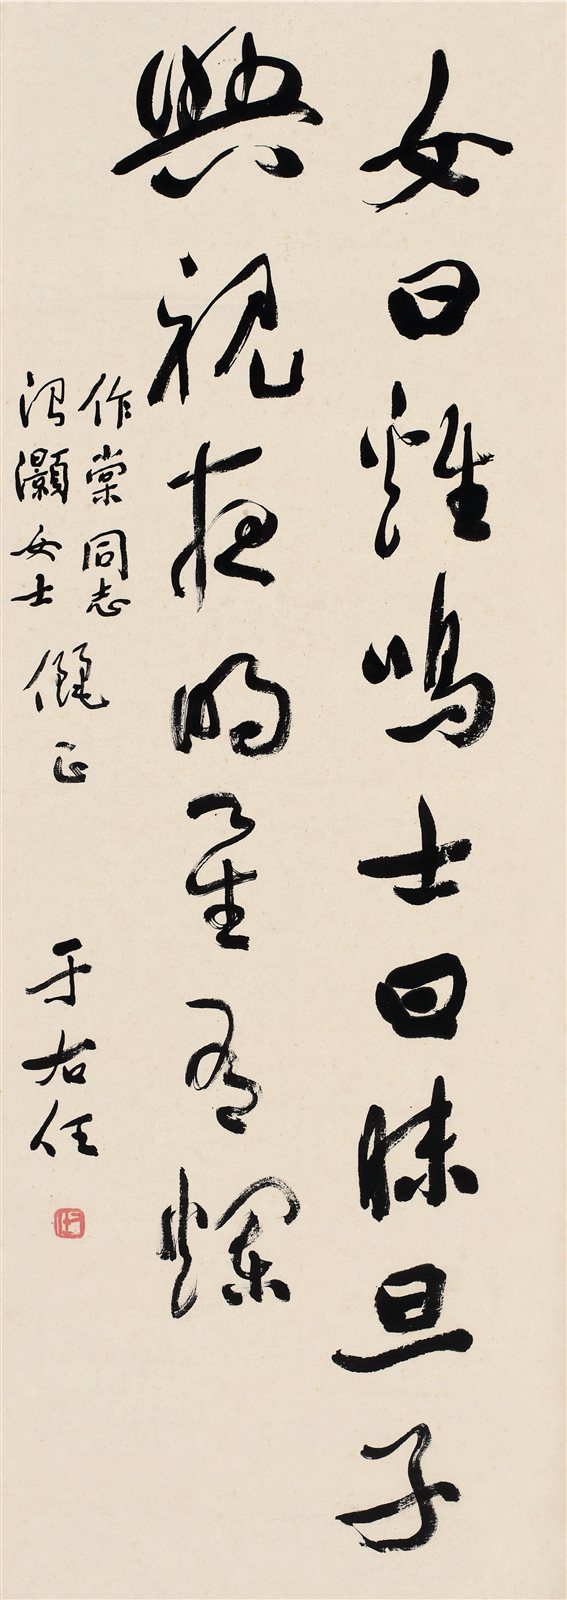 女曰雞鳴士曰昧旦子
興視夜明星有爛
作棠同志
灝女士
儷正
于右任